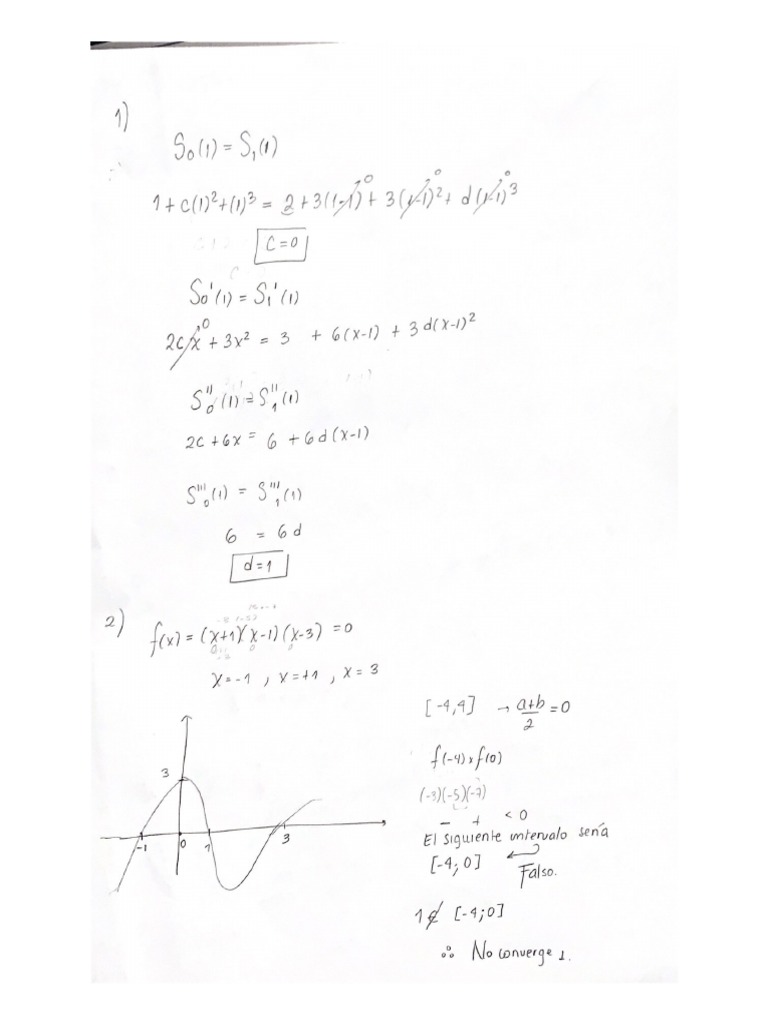 1)
S₀(1) = S₁(1)
1 + c(1)² + (1)³ = 2 + 3(1-1)⁰ + 3(1-1)²⁰ + d(1-1)³⁰
C = 0
S₀'(1) = S₁'(1)
2c x⁰ + 3x² = 3 + 6(x-1) + 3d(x-1)²
S₀''(1) = S₁''(1)
2c + 6x = 6 + 6d(x-1)
S₀'''(1) = S₁'''(1)
6 = 6d
d = 1
2)
f(x) = (x+1)(x-1)(x-3) = 0
x = -1 , x = +1 , x = 3
3
-1 0 1 3
[-4,4] → a+b/2 = 0
f(-4) × f(0)
(-3)(-5)(-7)
- + < 0
El siguiente intervalo sería
[-4; 0]
Falso.
1 ∉ [-4; 0]
∴ No converge 1.